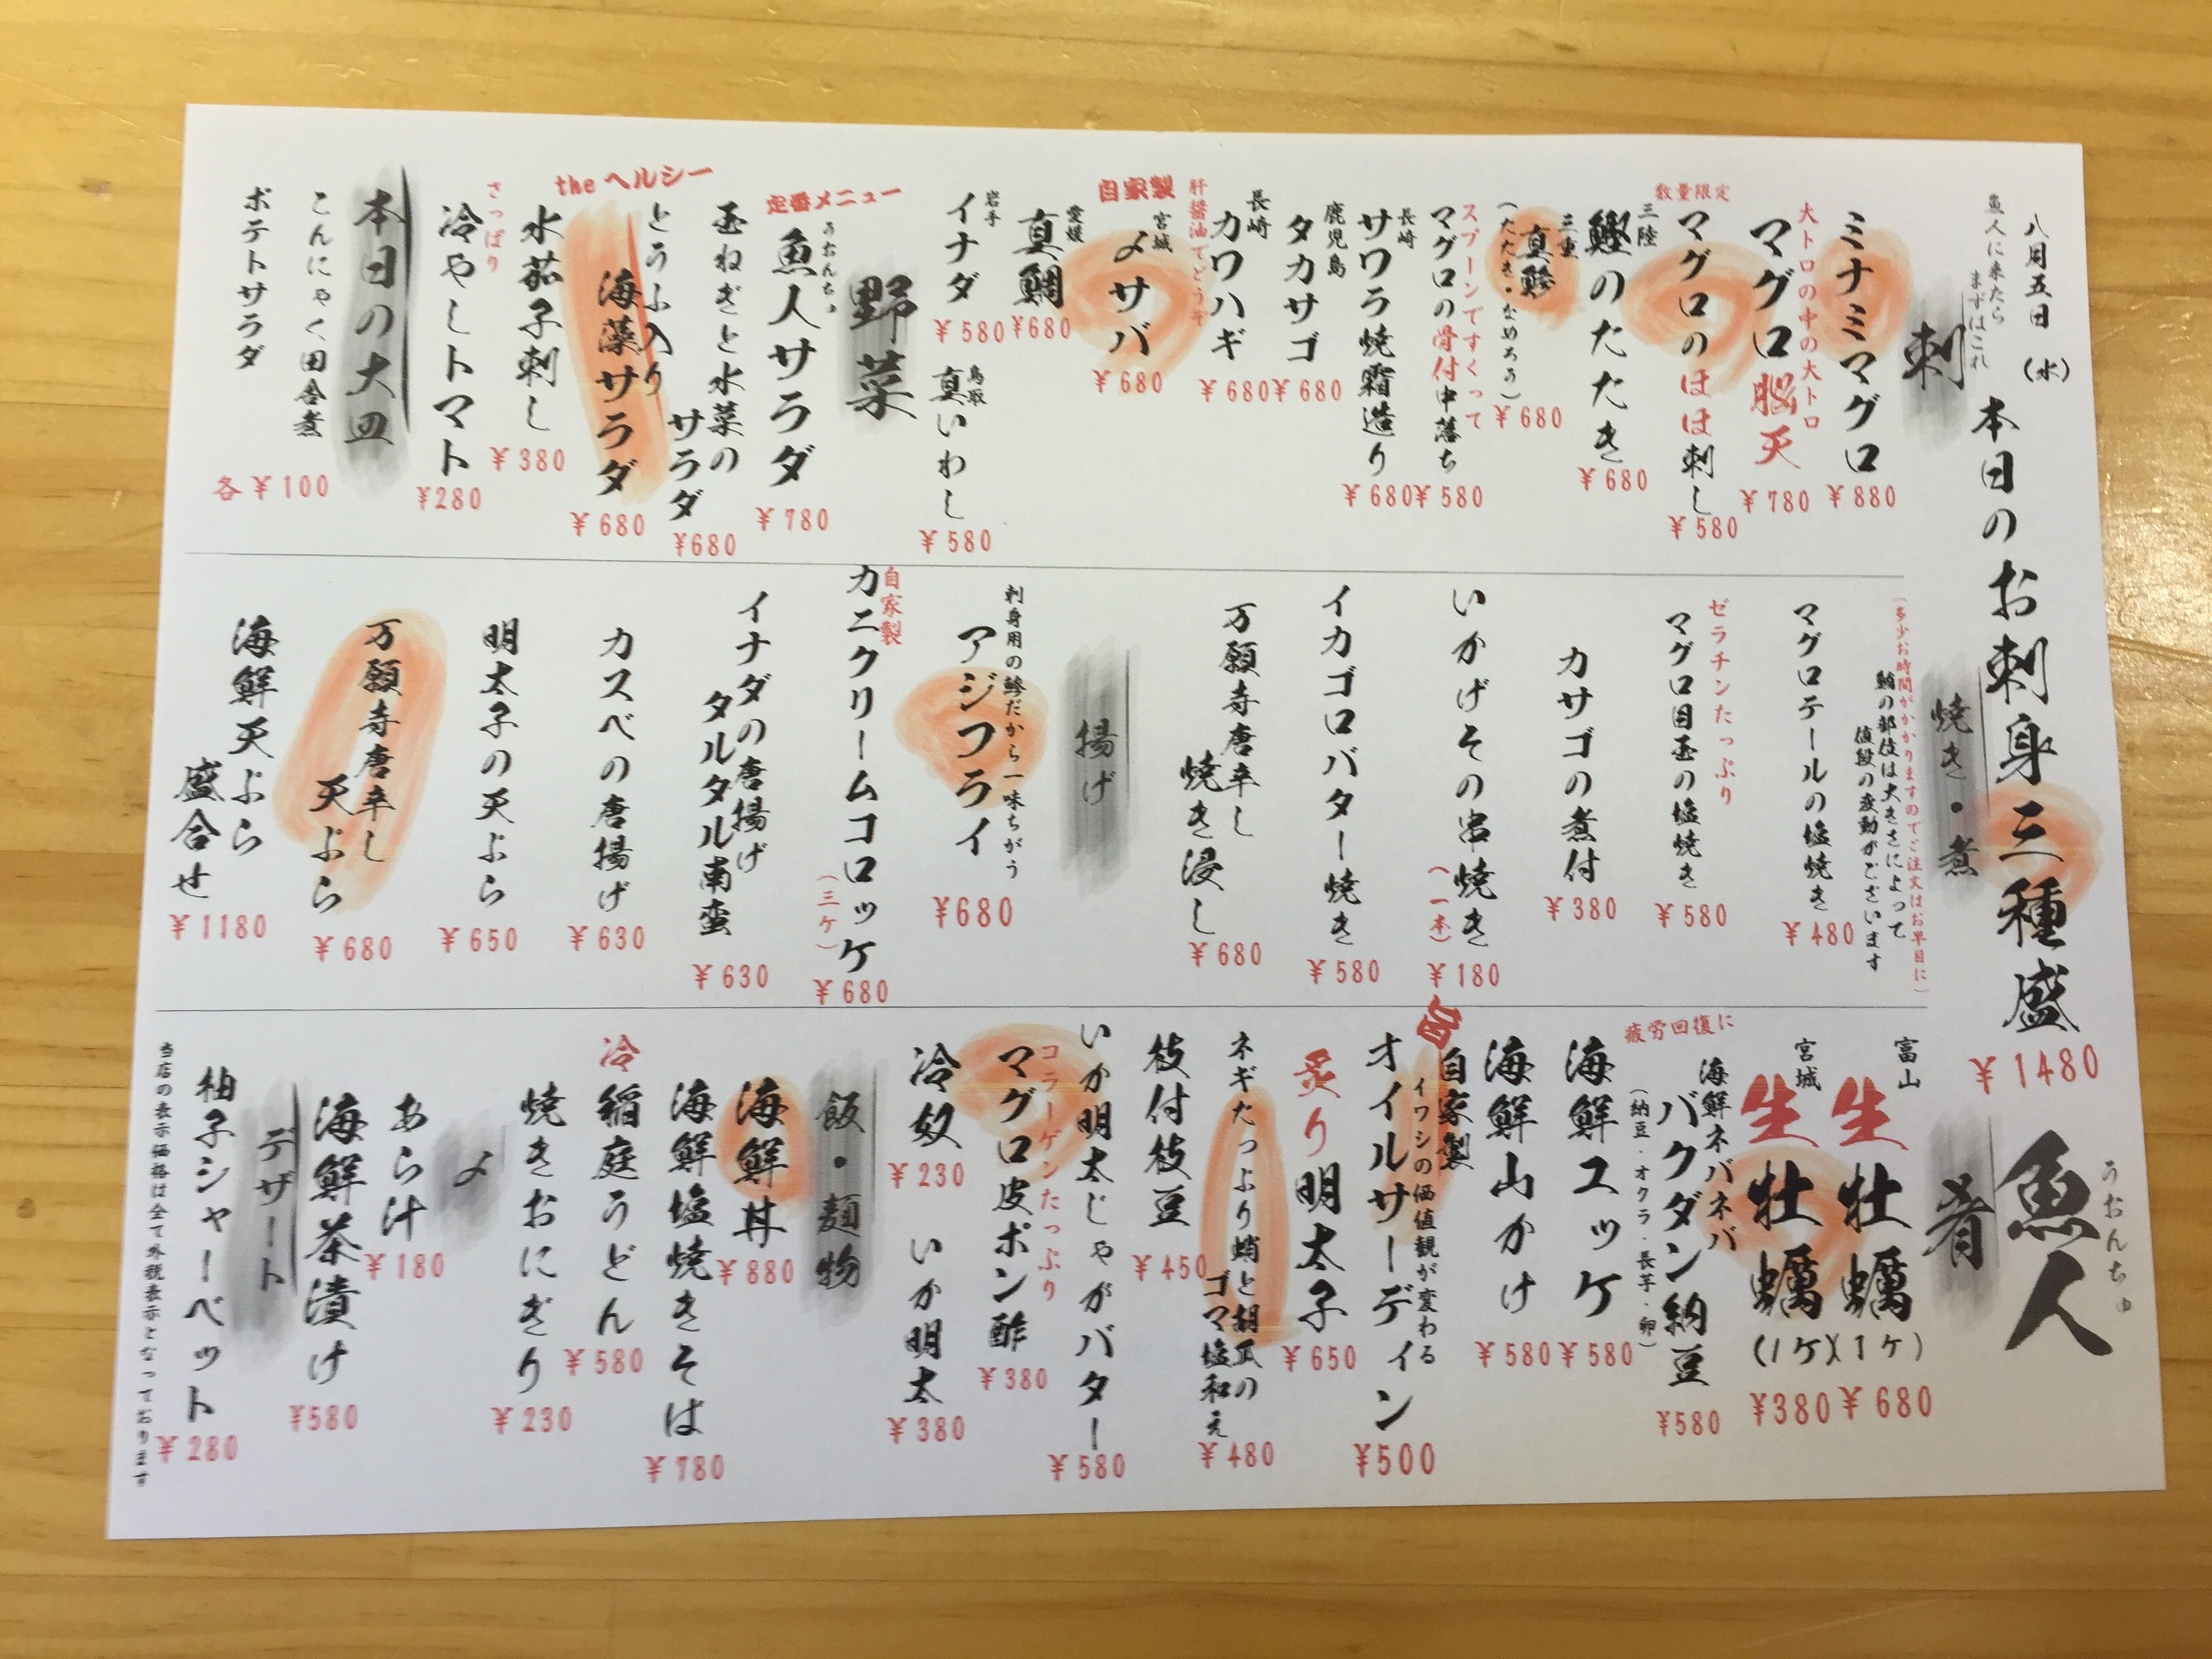 八月五日(水)
魚人に来たら
まずはこれ
本日のお刺身三種盛
¥1480
うおんちゅ
魚人
刺
ミナミマグロ
¥880
大トロの中の大トロ
マグロ脳天
¥780
数量限定
マグロのほほ刺し
¥580
三陸
鰹のたたき
¥680
三重
真鯵
(たたき・なめろう)
¥680
スプーンですくって
マグロの骨付中落ち
¥580
長崎
サワラ焼霜造り
¥680
鹿児島
タカサゴ
¥680
長崎
カワハギ
¥680
肝醤油でどうぞ
自家製
宮城
〆サバ
¥680
愛媛
真鯛
¥680
岩手
イナダ
¥580
鳥取
真いわし
¥580
野菜
定番メニュー
うおんちゅ
魚人サラダ
¥780
玉ねぎと水菜の
サラダ
¥680
theヘルシー
とうふ入り
海藻サラダ
¥680
水茄子刺し
¥380
さっぱり
冷やしトマト
¥280
本日の大皿
こんにゃく田舎煮
ポテトサラダ
各¥100
焼き・煮
(多少お時間がかかりますのでご注文はお早目に)
鮪の部位は大きさによって
値段の変動がございます
マグロテールの塩焼き
¥480
ゼラチンたっぷり
マグロ目玉の塩焼き
¥580
カサゴの煮付
¥380
いかげその串焼き
(一本)
¥180
イカゴロバター焼き
¥580
万願寺唐辛し
焼き浸し
¥680
揚げ
刺身用の鯵だから一味ちがう
アジフライ
¥680
自家製
カニクリームコロッケ
(三ケ)
¥680
イナダの唐揚げ
タルタル南蛮
¥630
カスベの唐揚げ
¥630
明太子の天ぷら
¥650
万願寺唐辛し
天ぷら
¥680
海鮮天ぷら
盛合せ
¥1180
肴
富山
生牡蠣
(1ケ)
¥680
宮城
生牡蠣
(1ケ)
¥380
疲労回復に
海鮮ネバネバ
バクダン納豆
(納豆・オクラ・長芋・卵)
¥580
海鮮ユッケ
¥580
海鮮山かけ
¥580
自家製
イワシの価値観が変わる
オイルサーディン
¥500
炙り明太子
¥650
ネギたっぷり蛸と胡瓜の
ゴマ塩和え
¥480
枝付枝豆
¥450
いか明太じゃがバター
¥580
コラーゲンたっぷり
マグロ皮ポン酢
¥380
冷奴
¥230
いか明太
¥380
飯・麺物
海鮮丼
¥880
海鮮塩焼きそば
¥780
冷稲庭うどん
¥580
焼きおにぎり
¥230
〆
あら汁
¥180
海鮮茶漬け
¥580
デザート
柚子シャーベット
¥280
当店の表示価格は全て外税表示となっております